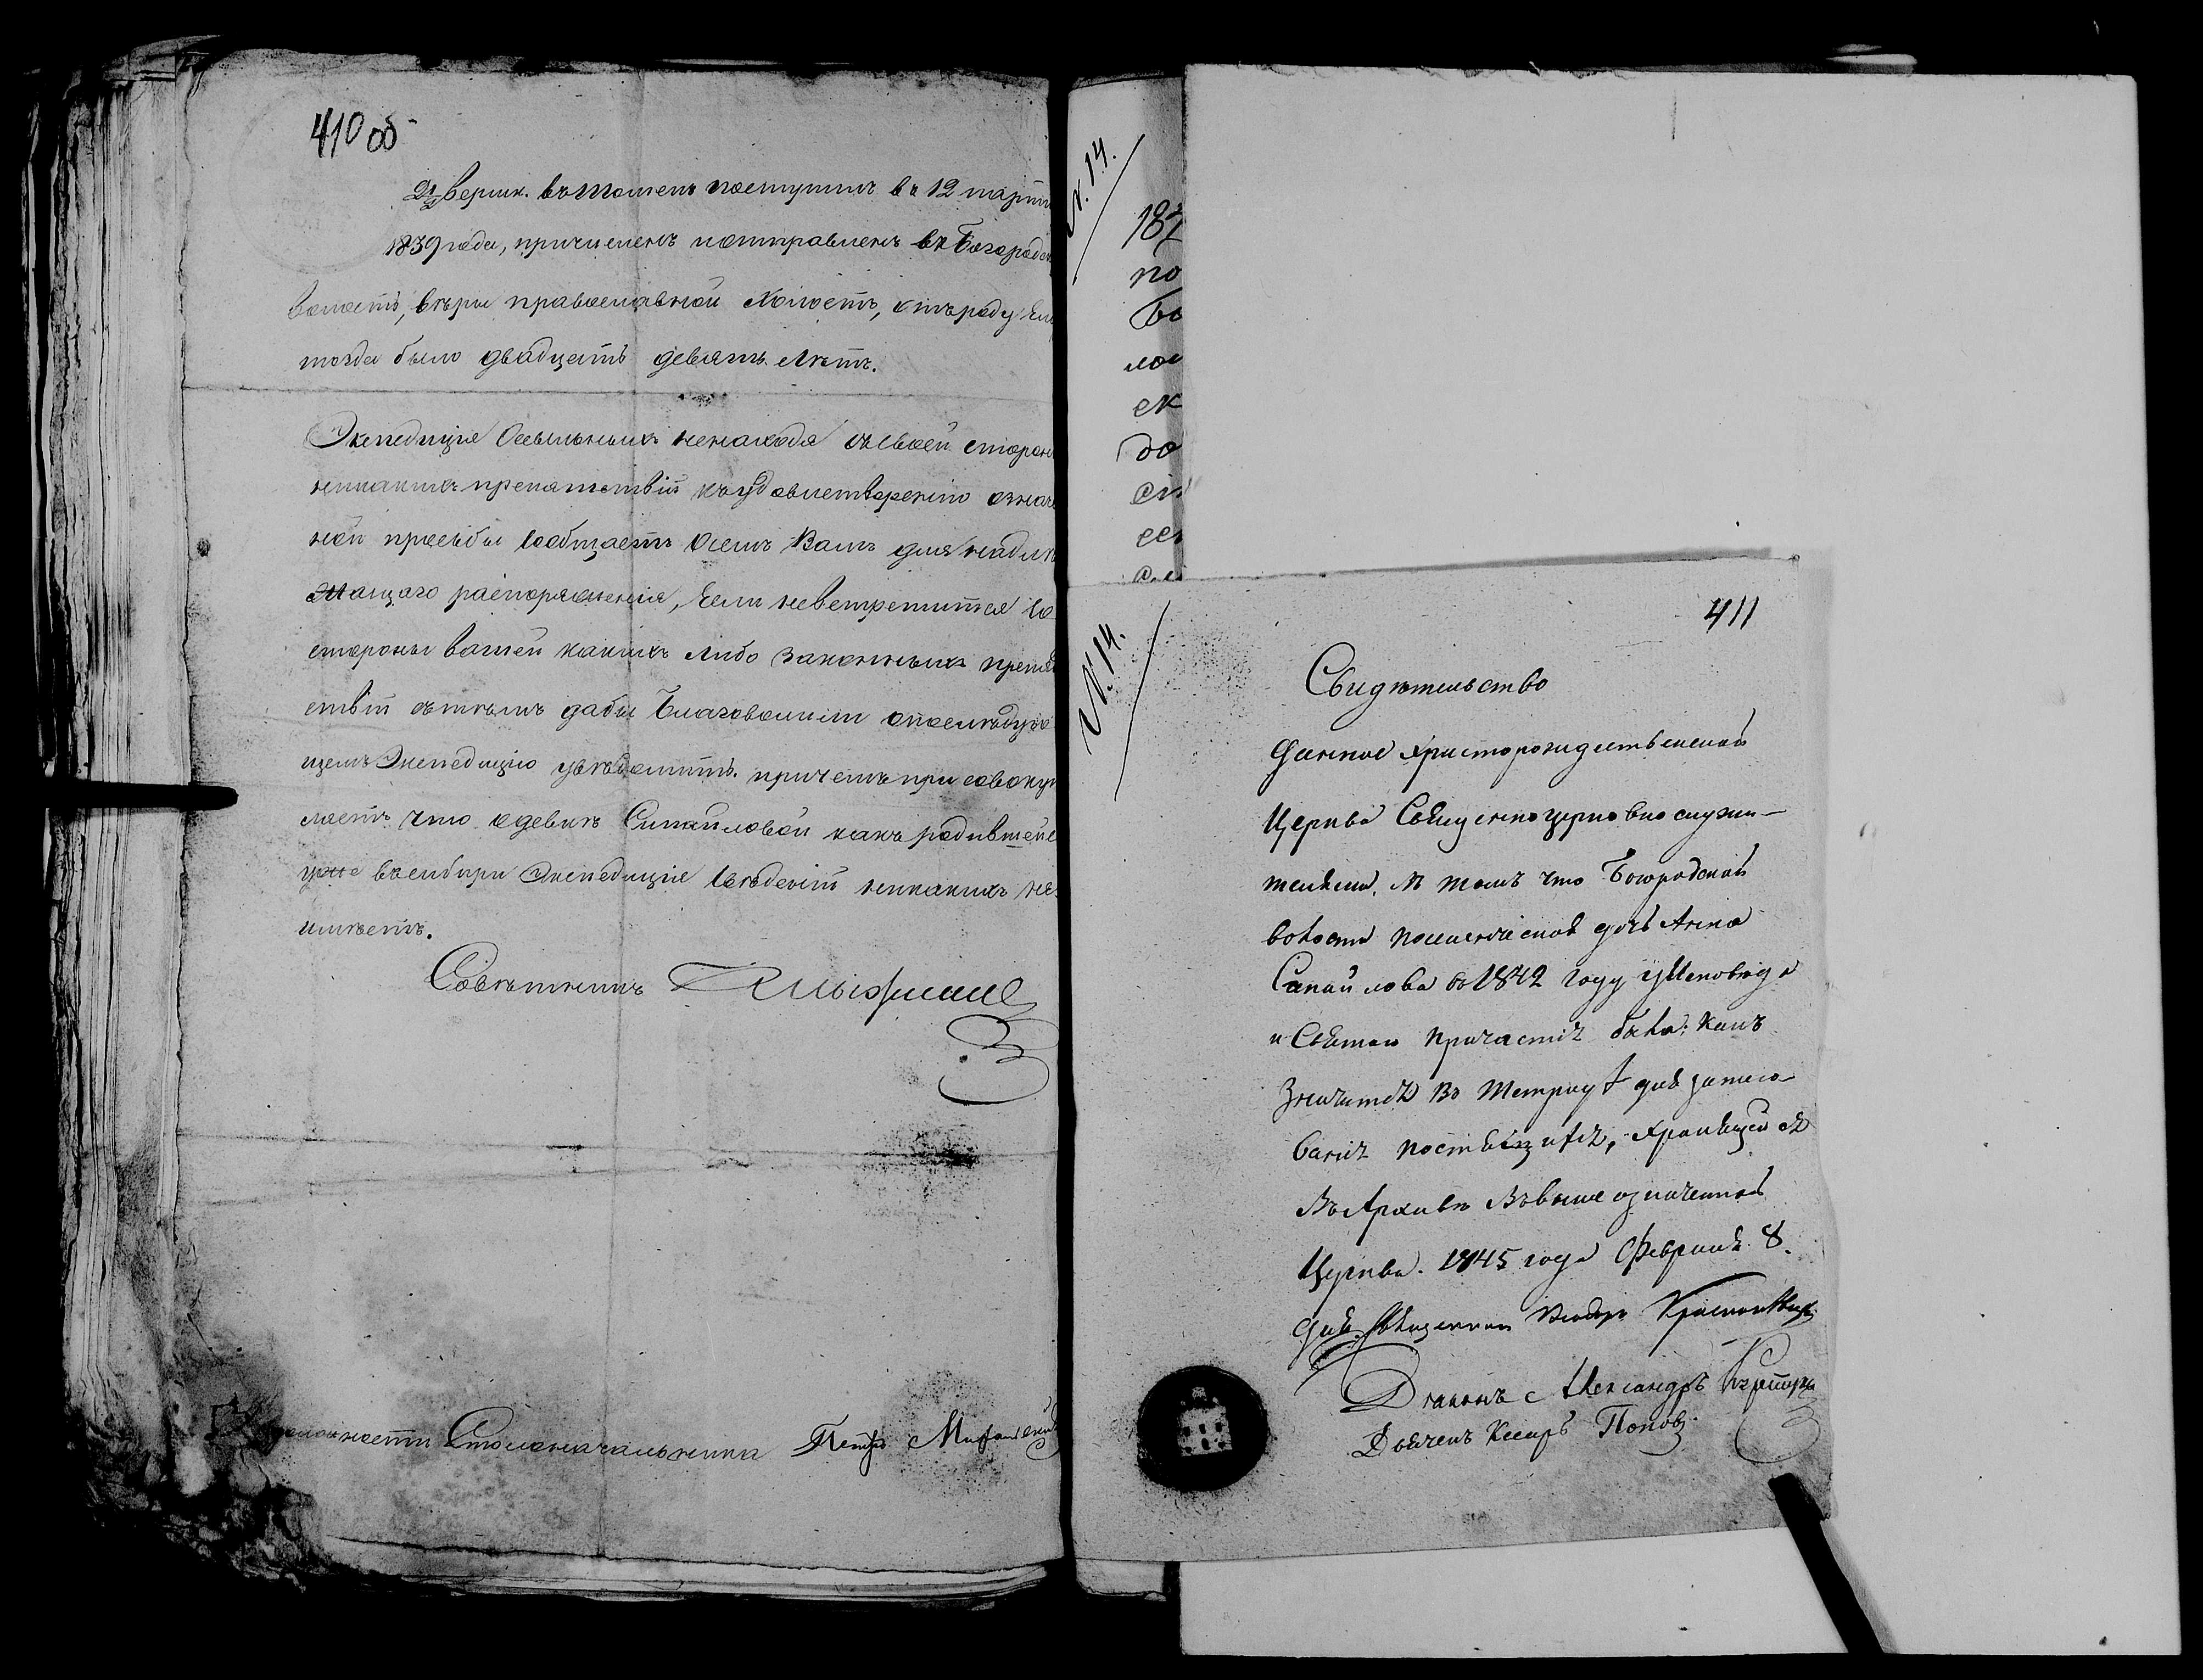 410 об
2 1/2 вершк. въ Томскъ поступилъ въ 12 парті
1839 года, причисленъ и отправленъ въ Богородск
волость, вѣры православной холостъ, отъ роду ему
тогда было двадцать девять лѣтъ.
Экспедиція Ссыльныхъ ненаходя съ своей сторон
никакихъ препятствій къ удовлетворенію означ
ной просьбы сообщаетъ о семъ Вамъ для надле
жащаго распоряженія, если невстретится со
стороны вашей какихъ либо законныхъ препят
ствій съ тѣмъ дабы благоволили о послѣдую
щемъ Экспедицію увѣдомить. причемъ присовокуп
ляетъ что о девкѣ Синайловой какъ родившейся
уже въ сибири Экспедиція свѣденій никакихъ не
имѣетъ.
Совѣтникъ
Столоначальника Петръ
N. 14.
187
по
бо
ло
ек
до
сі
ее
N. 14.
411
Свидѣтельство
данное Христорождественской
Церкви Священноцерковнослужи-
телями. в томъ что Богородской
волости поселенческая дочь Анна
Синайлова въ 1842 году у Исповѣди
и Святаго Причастія была: какъ
значится въ Тетради для записы
ванія постящихся, хранящейся
въ Архивѣ Вышеозначенной
Церкви. 1845 года Февраля 8.
дня. Священникъ
Діаконъ Александръ
Дьячекъ Поповъ